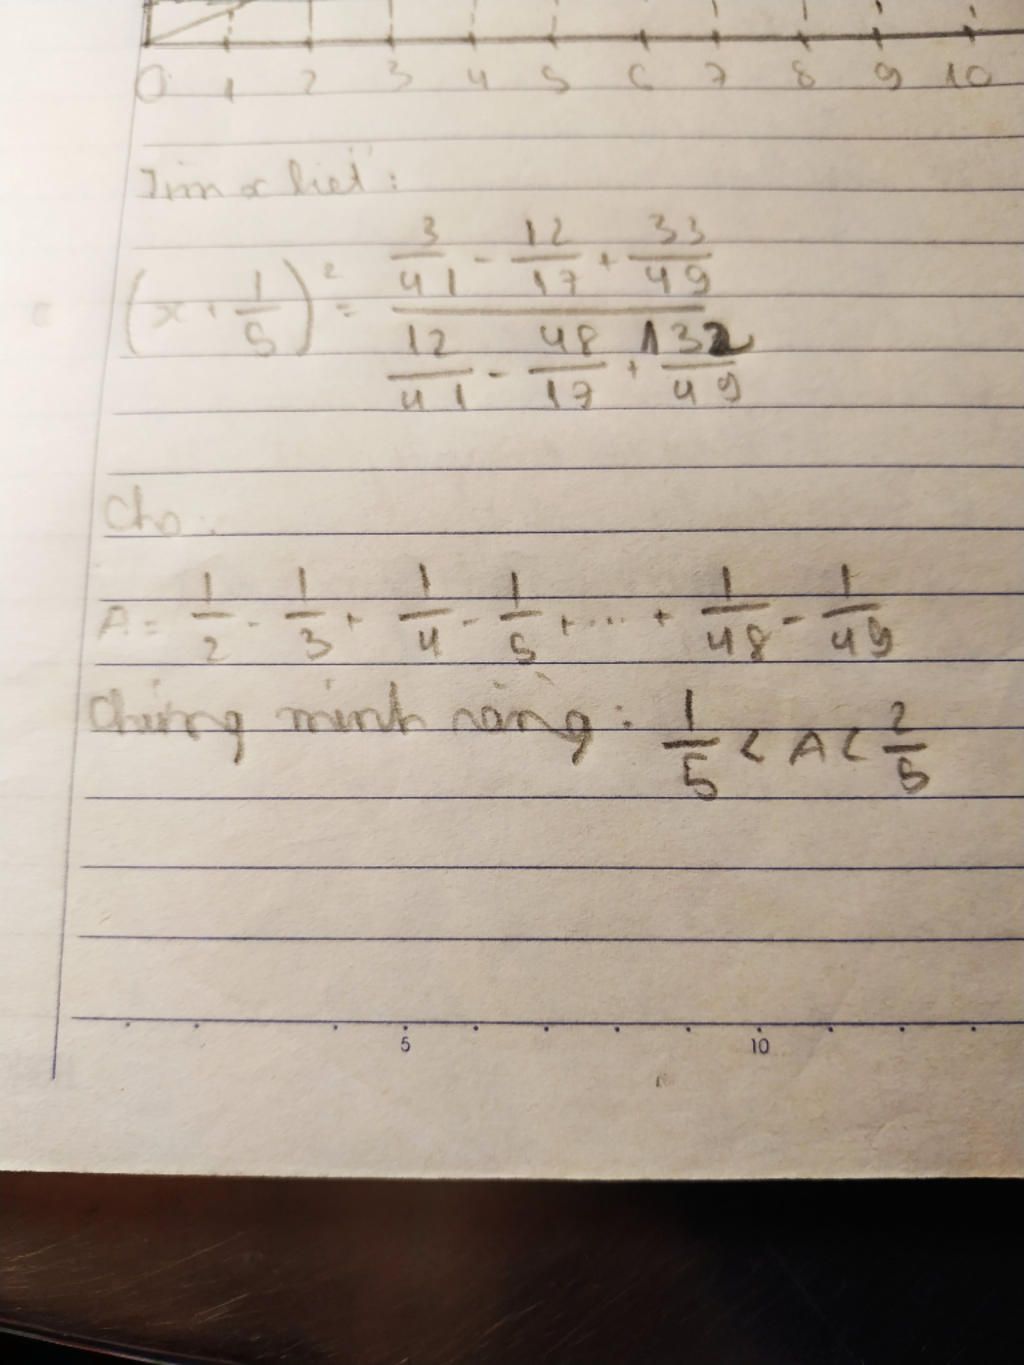 0 1 2 3 4 5 6 7 8 9 10
Tìm x biết:
(x + 1/5)² = (3/41 - 12/17 + 33/49) / (12/41 - 48/17 + 132/49)
Cho:
A = 1/2 - 1/3 + 1/4 - 1/5 + ... + 1/48 - 1/49
Chứng minh rằng: 1/5 < A < 2/5
5 10